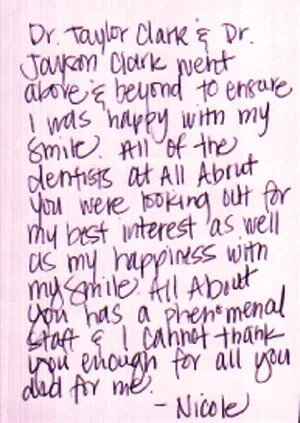 Dr. Taylor Clark & Dr.
Jayson Clark went
above & beyond to ensure
I was happy with my
smile. All of the
dentists at All About
you were looking out for
my best interest as well
as my happiness with
my smile. All About
you has a phenomenal
staff & I cannot thank
you enough for all you
did for me.
- Nicole